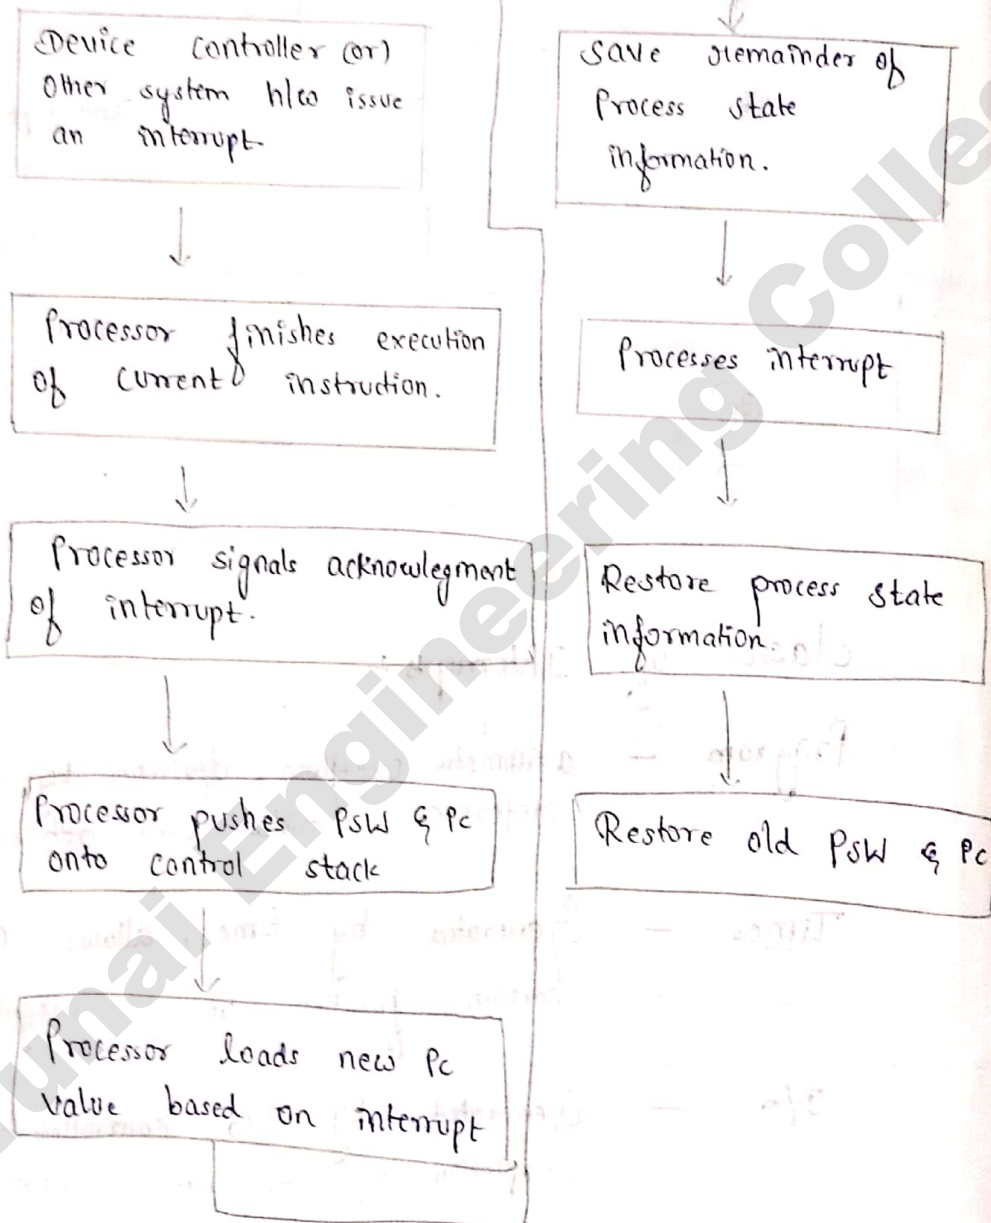 Device controller (or)
Other system h/w issue
an interrupt.
Processor finishes execution
of current instruction.
Processor signals acknowlegment
of interrupt.
Processor pushes PSW & PC
onto control stack
Processor loads new PC
value based on interrupt
Save remainder of
Process state
information.
Processes interrupt
Restore process state
information.
Restore old PSW & PC
unai Engineering Colle